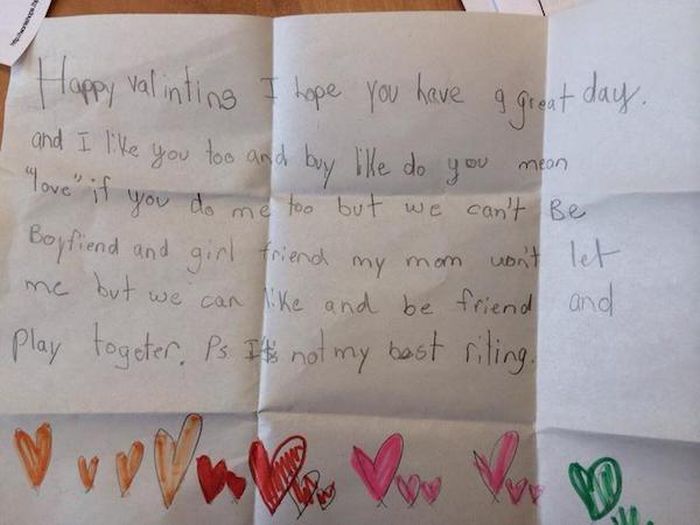 Happy valintins I hope you have a great day.
and I like you too and buy like do you mean
"love" if you do me too but we can't Be
Boyfiend and girl friend my mom won't let
me but we can like and be friend and
Play togeter. Ps It's not my best riting.